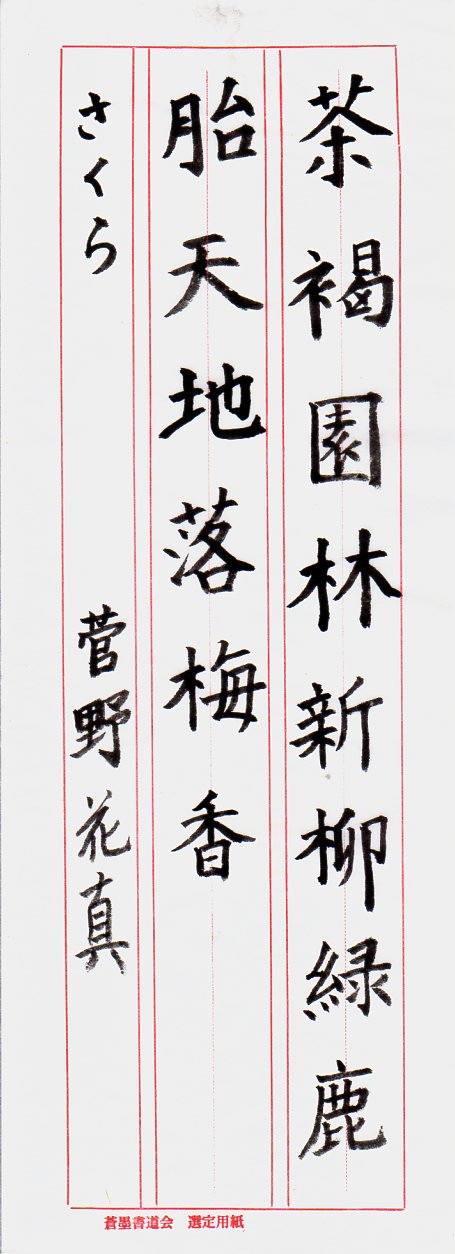 茶褐園林新柳緑鹿
胎天地落梅香
さくら 菅野花真
蒼墨書道会 選定用紙